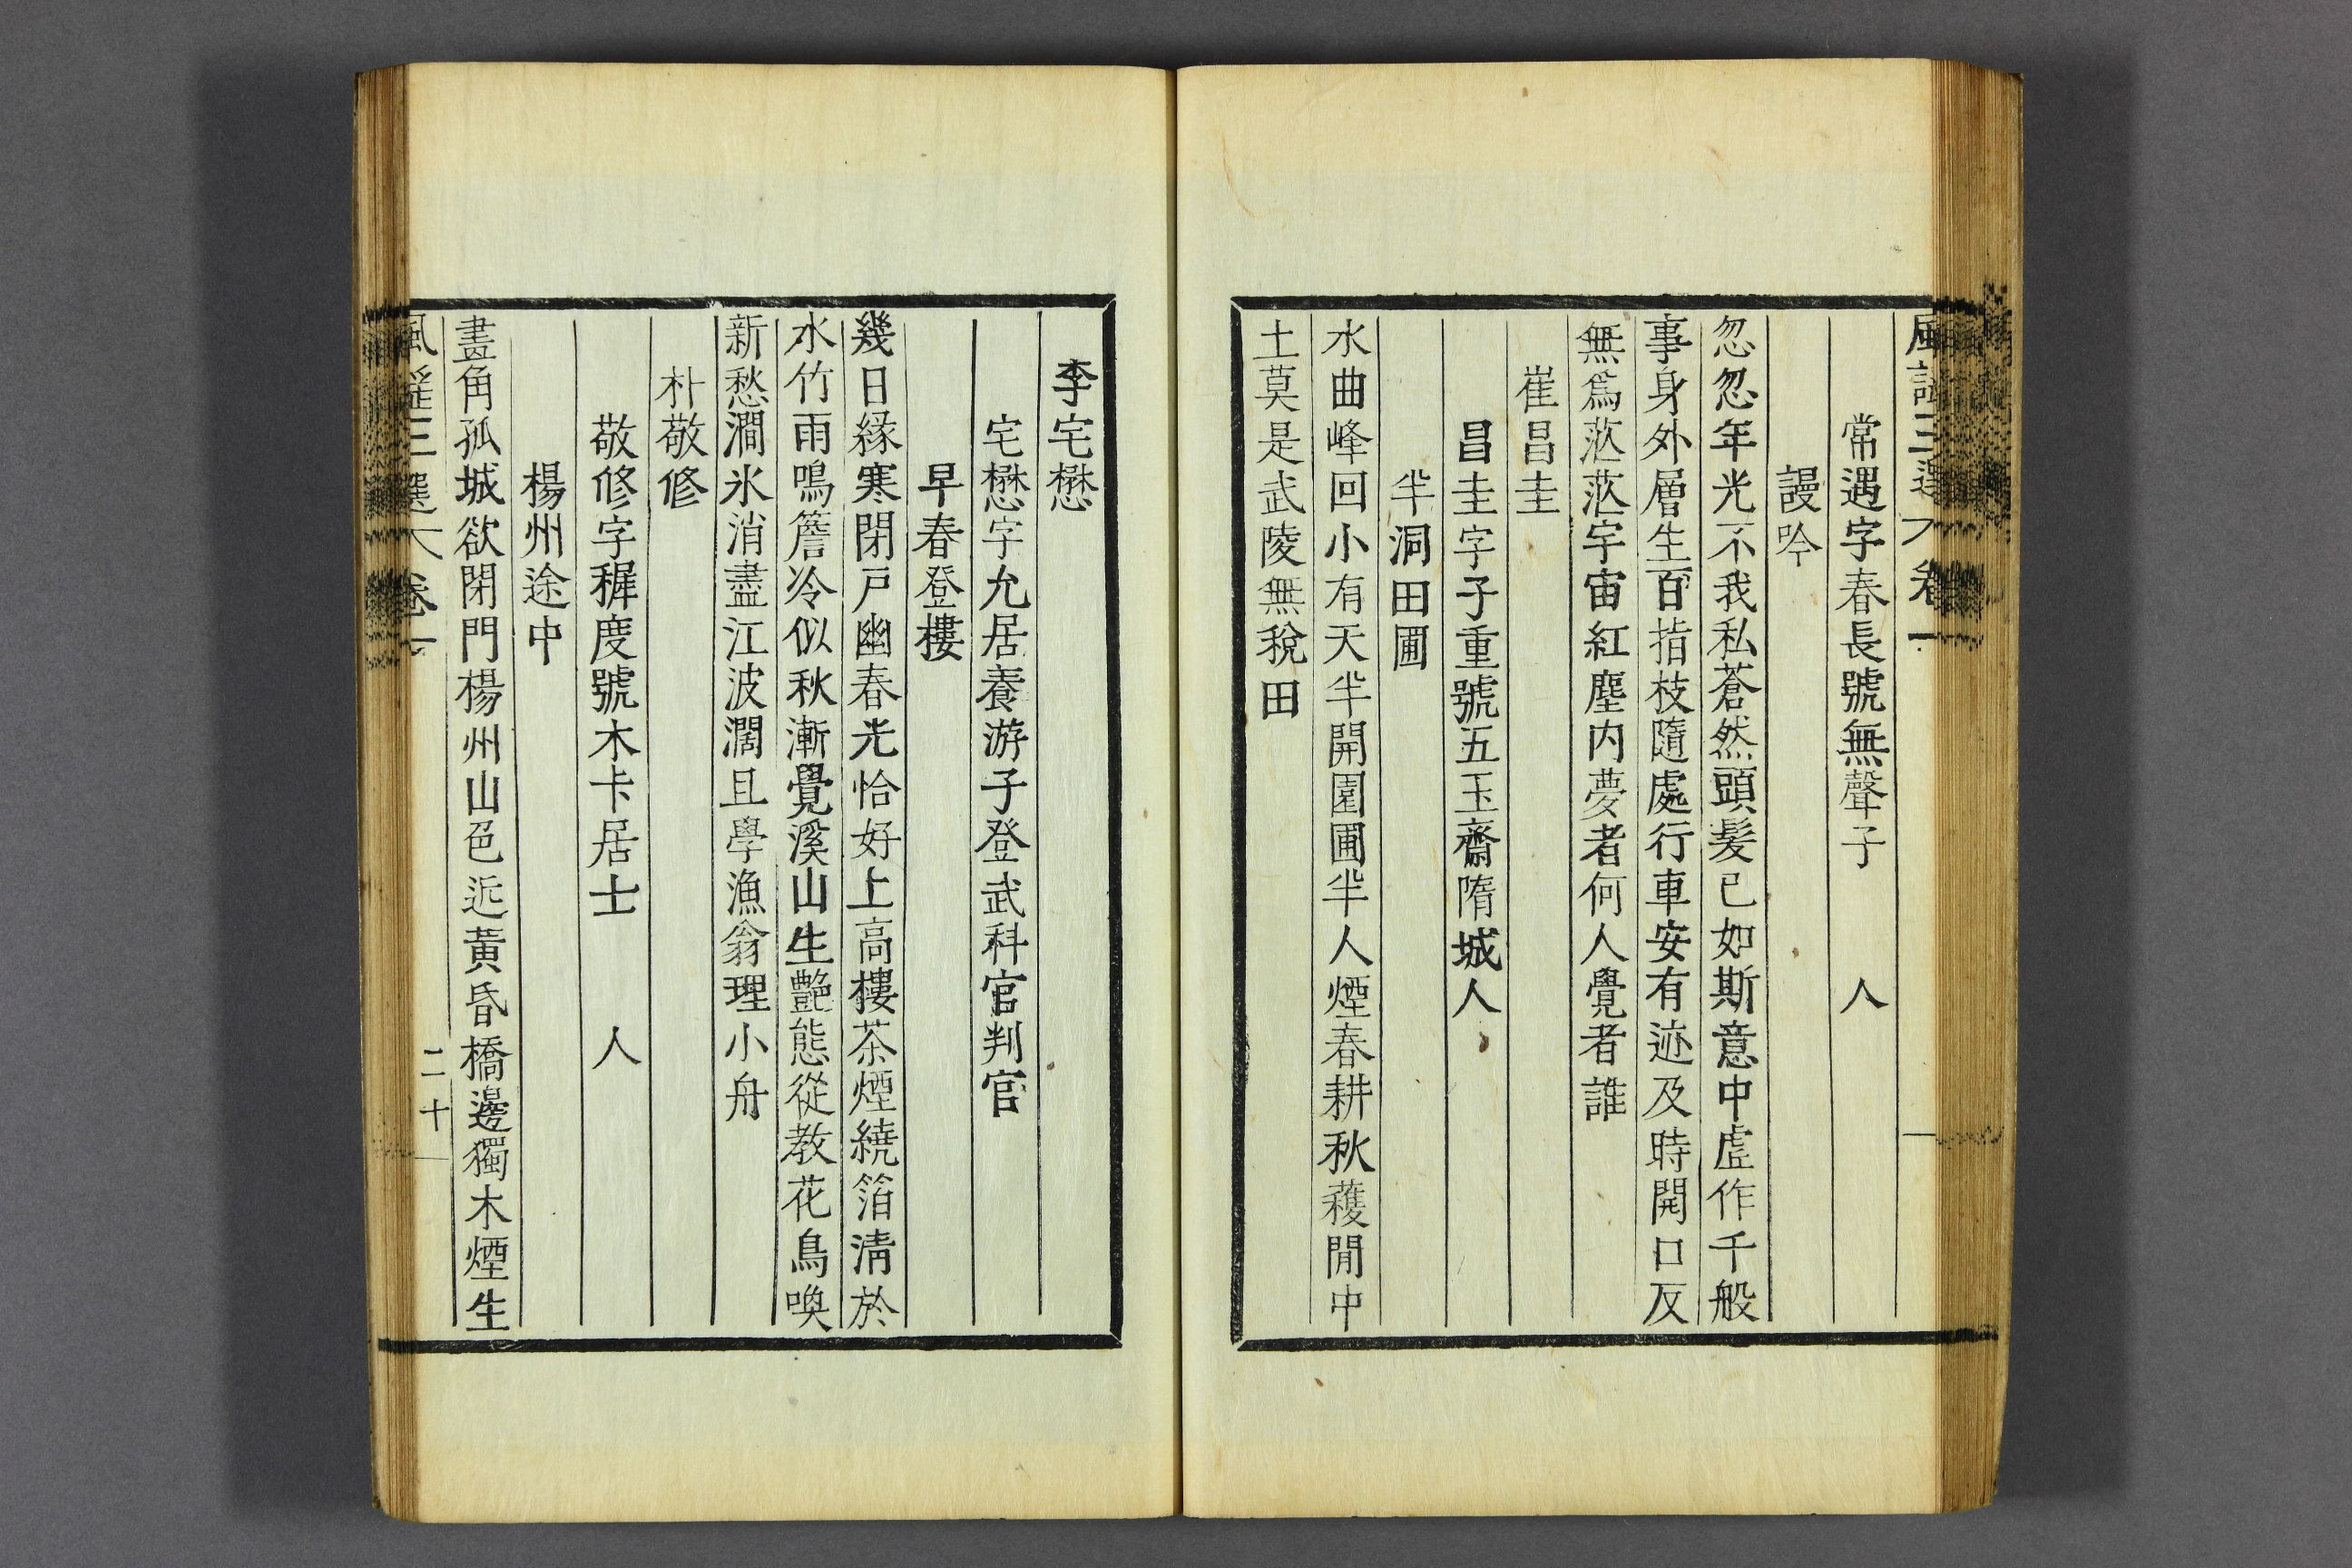 風謠三選 卷一
常遇字春長號無聲子 人
謾吟
忽忽年光不我私蒼然頭髮已如斯意中虛作千般
事身外層生百指枝隨處行車安有迹及時開口反
無爲茫茫宇宙紅塵内夢者何人覺者誰
崔昌圭
昌圭字子重號五玉齋隋城人
芈洞田圃
水曲峰回小有天芈開園圃芈人煙春耕秋穫閒中
土莫是武陵無稅田
李宅懋
宅懋字允居養游子登武科官判官
早春登樓
幾日緣寒閉戶幽春光恰好上高樓茶煙繞箔淸於
水竹雨鳴簷冷似秋漸覺溪山生艶態從教花鳥喚
新愁澗氷消盡江波濶且學漁翁理小舟
朴敬修
敬修字穉度號木卡居士 人
楊州途中
畫角孤城欲閉門楊州山色近黃昏橋邊獨木煙生
風謠三選 卷一 二十